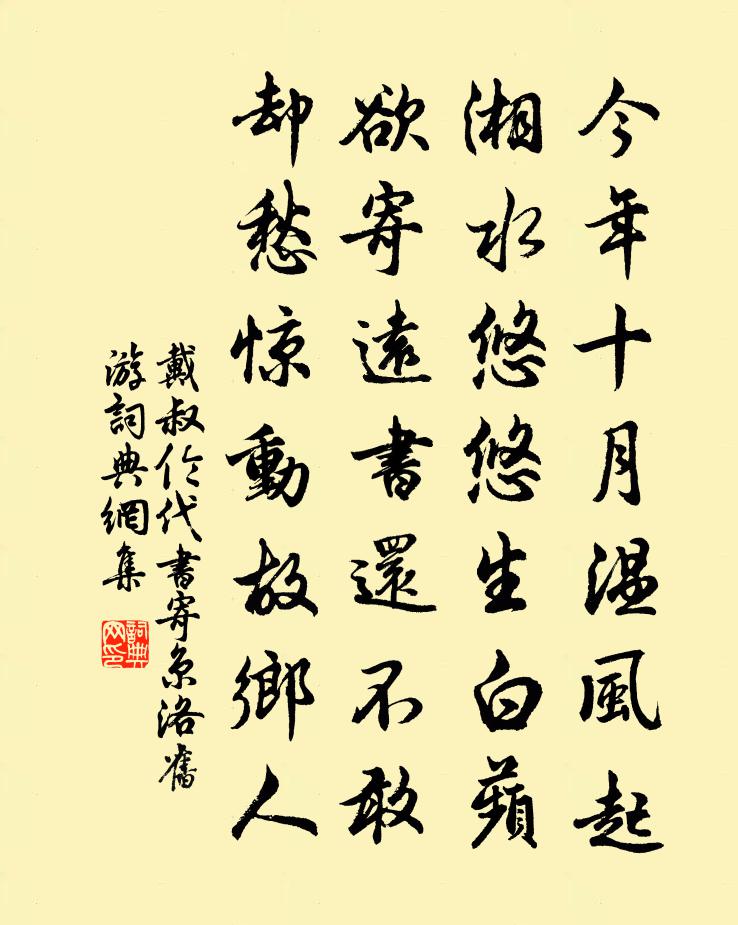 今年十月温風起
湘水悠悠生白蘋
欲寄遠書還不敢
却愁惊動故鄉人
戴叔伦代書寄京洛舊
游詞典網集
詞典网印